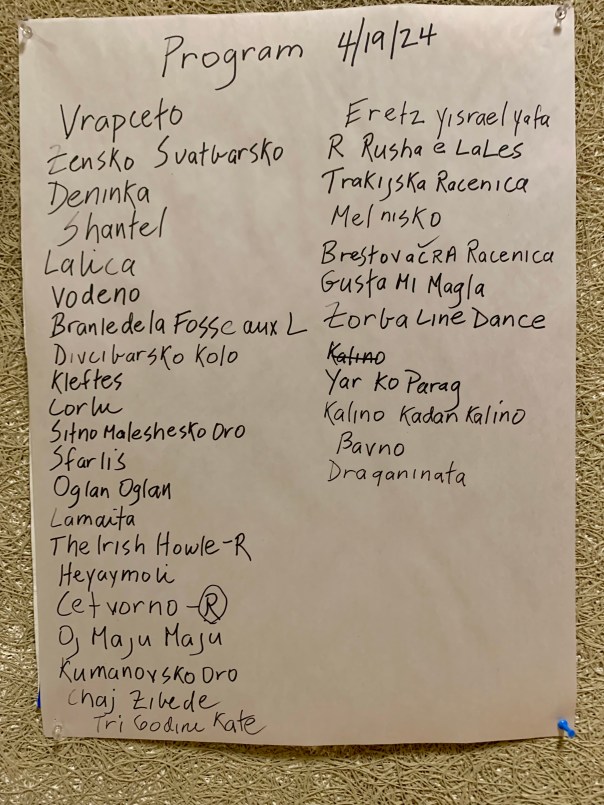 Program 4/19/24
Vrapceto
Zensko Svatbarsko
Deninka
Shantel
Lalica
Vodeno
Branle de la Fosse aux L
Divcibarsko Kolo
Kleftes
Corlu
Sitno Maleshesko Oro
Sfarlis
Oglan Oglan
Lamaita
The Irish Howle-R
Heyaymoli
Cetvorno-R
Oj Maju Maju
Kumanovsko Oro
Chaj Zibede
Tri Godini Kate
Eretz Yisrael Yafa
R Rusha e Lales
Trakijska Racenica
Melnisko
BrestovačRA Racenica
Gusta Mi Magla
Zorba Line Dance
Kalino
Yar Ko Parag
Kalino Kadan Kalino
Bavno
Draganinata